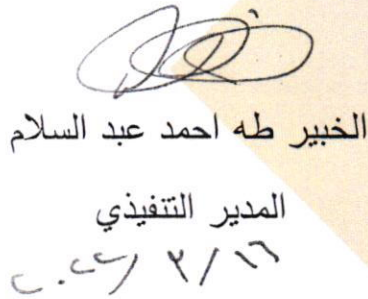 الخبير طه احمد عبد السلام
المدير التنفيذي
٢٠٢٢/٣/١٦